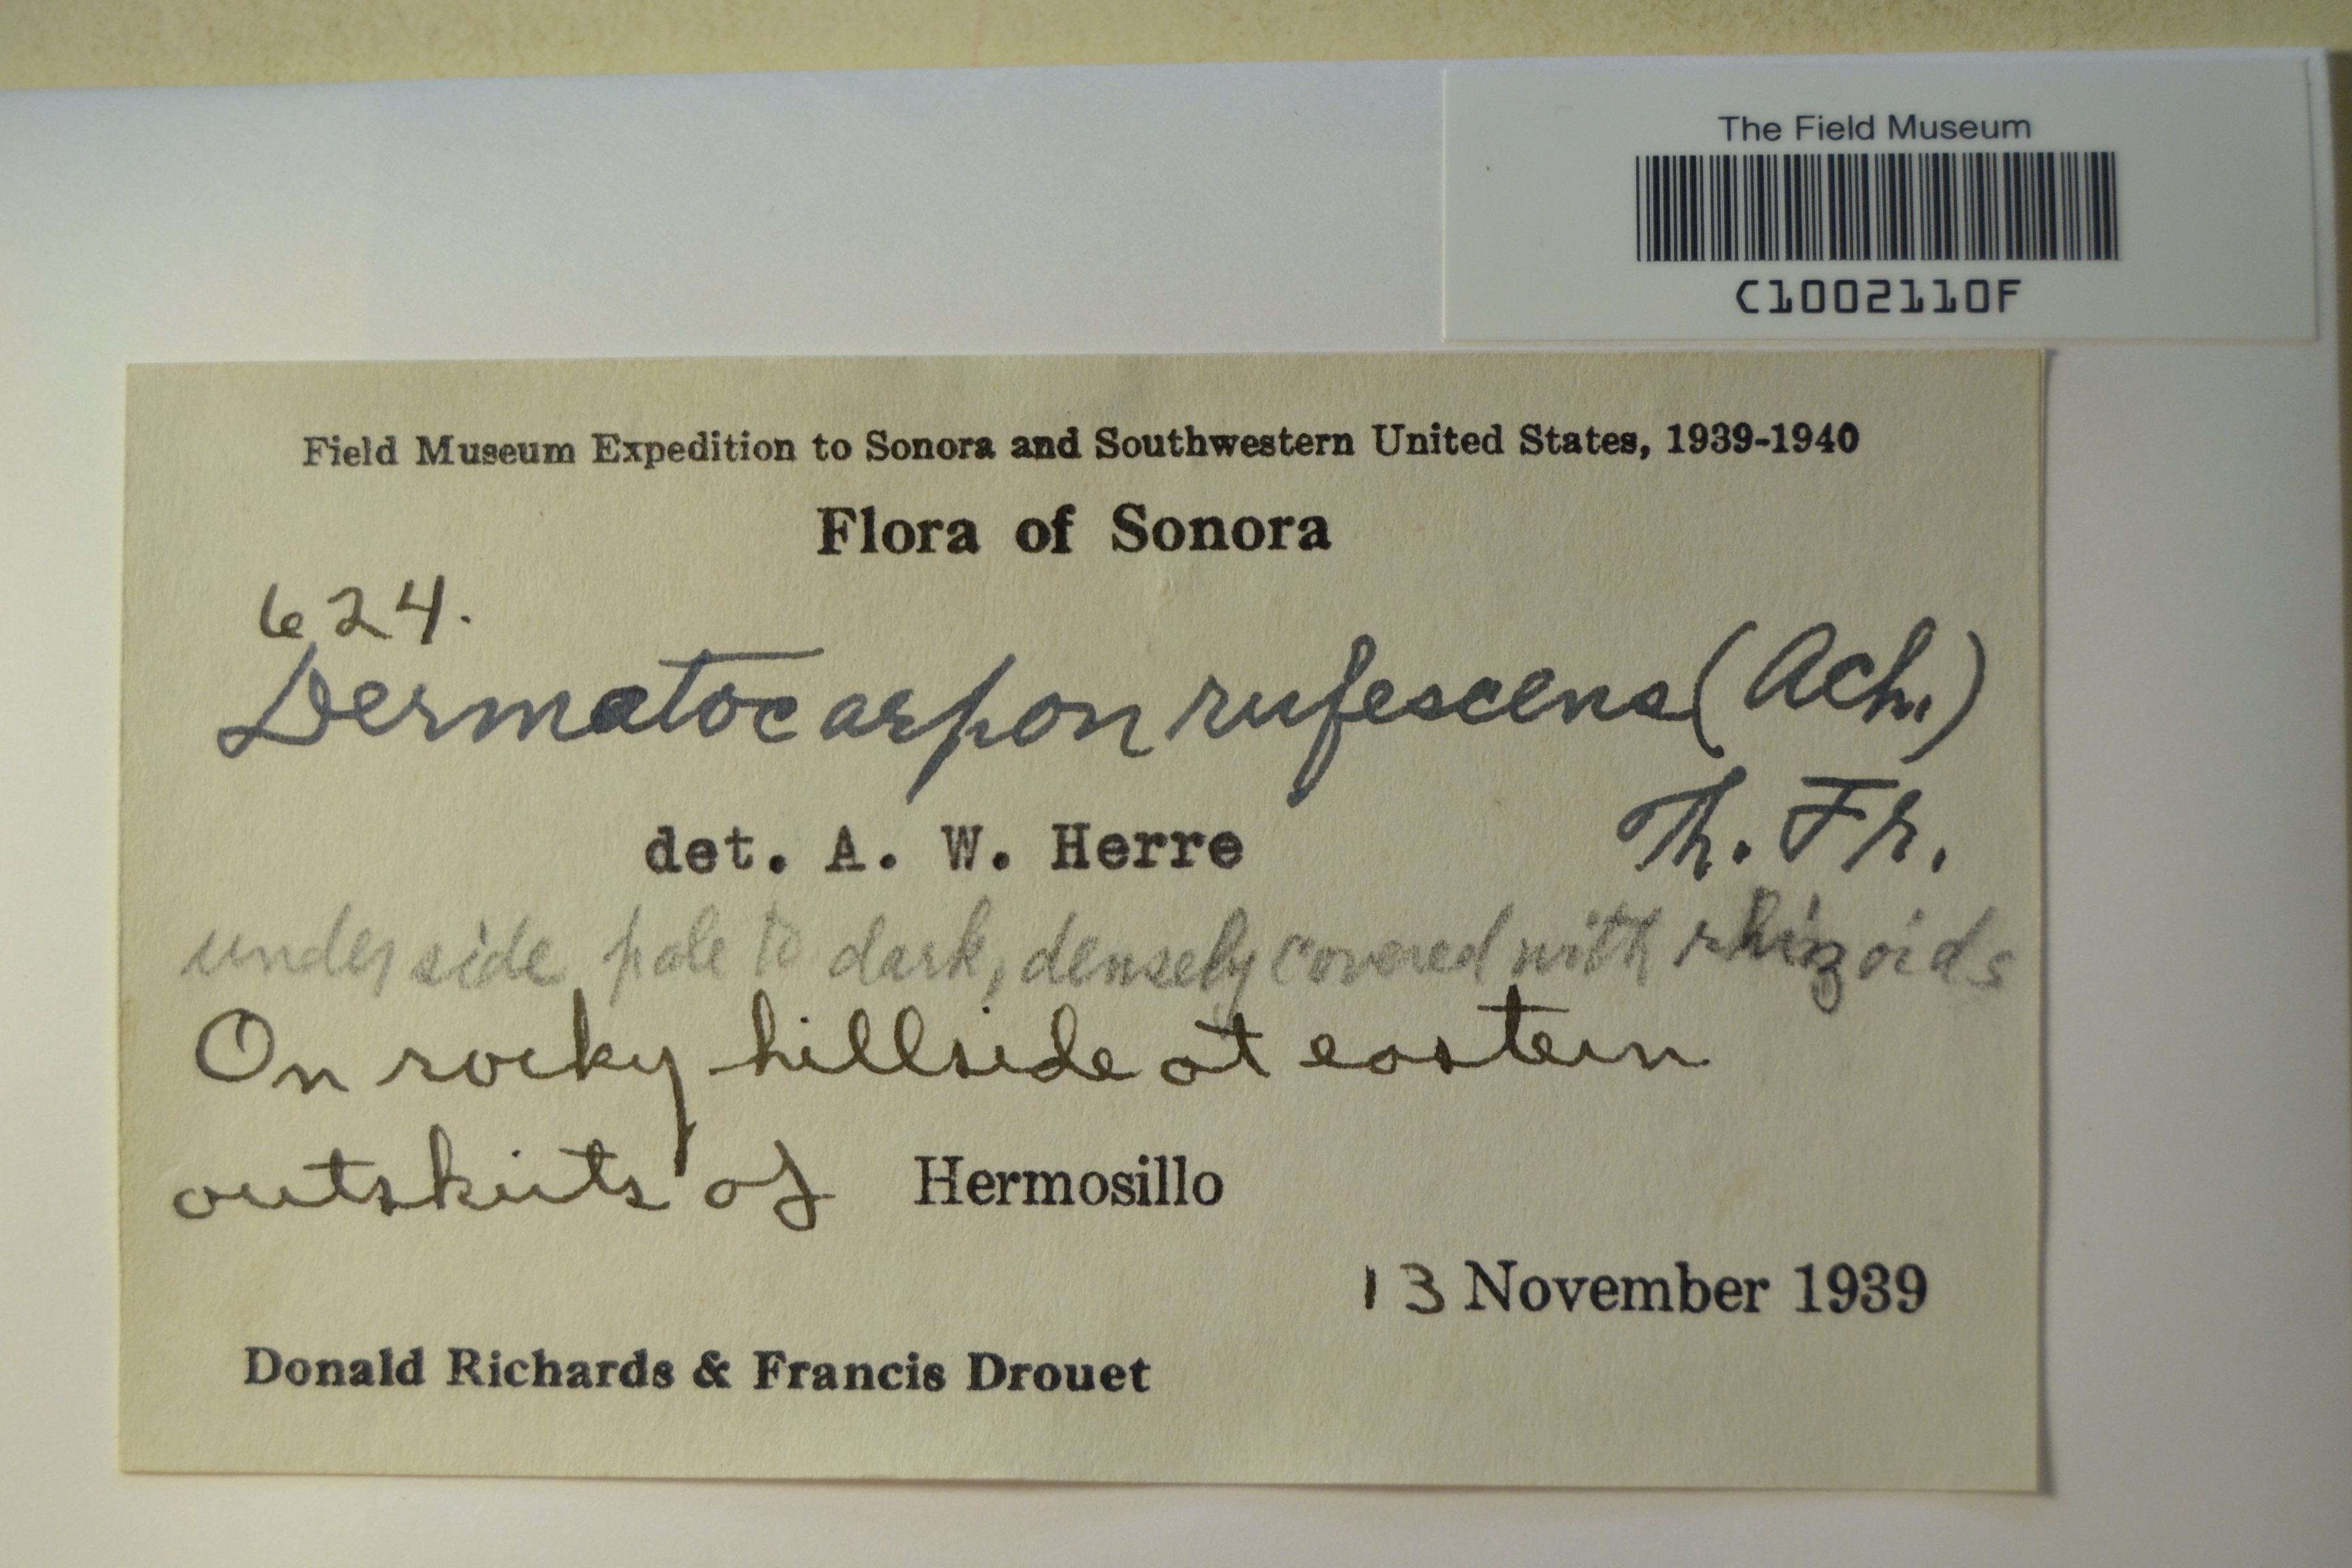 The Field Museum
C1002110F
Field Museum Expedition to Sonora and Southwestern United States, 1939-1940
Flora of Sonora
624.
Dermatocarpon rufescens (Ach.)
Th. Fr.
det. A. W. Herre
under side pale to dark, densely covered with rhizoids
On rocky hillside at eastern
outskirts of Hermosillo
13 November 1939
Donald Richards & Francis Drouet